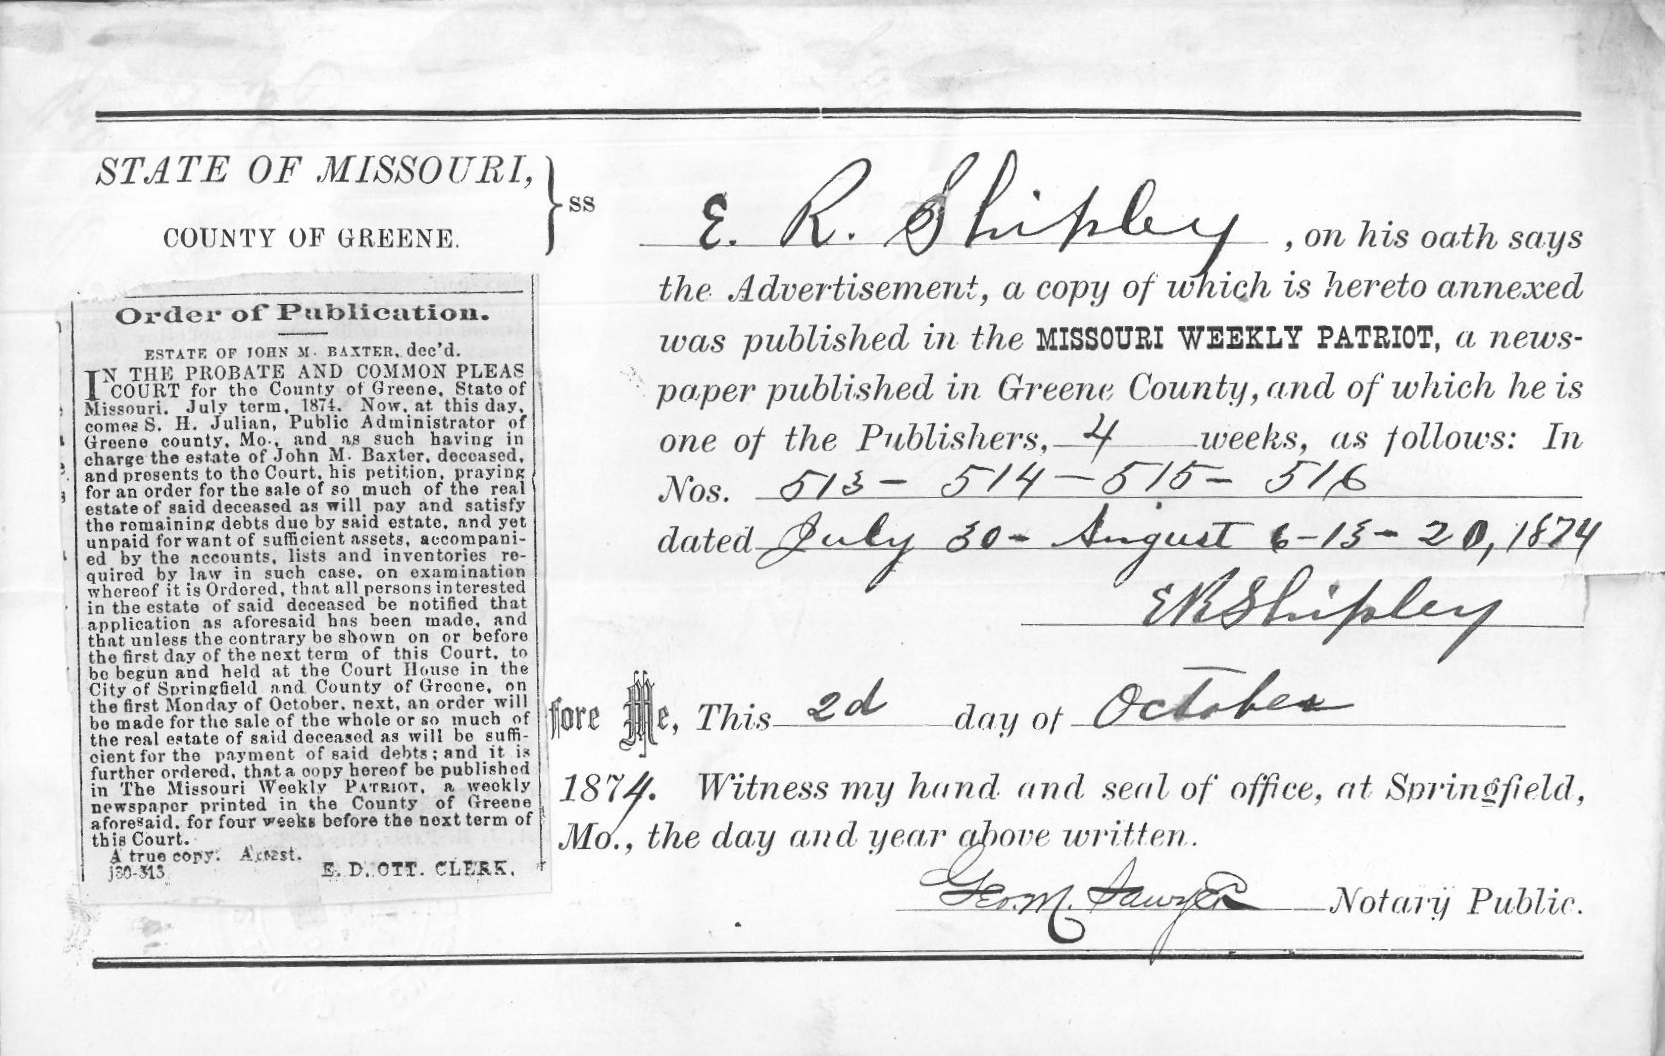 STATE OF MISSOURI,
COUNTY OF GREENE.
} ss
E. R. Shipley, on his oath says
the Advertisement, a copy of which is hereto annexed
was published in the MISSOURI WEEKLY PATRIOT, a news-
paper published in Greene County, and of which he is
one of the Publishers, 4 weeks, as follows: In
Nos. 513 - 514 - 515 - 516
dated July 30 - August 6 - 13 - 20, 1874
E R Shipley
fore Me, This 2d day of October
1874. Witness my hand and seal of office, at Springfield,
Mo., the day and year above written.
Geo. M. Sawyer Notary Public.
Order of Publication.
ESTATE OF JOHN M. BAXTER, dec'd.
IN THE PROBATE AND COMMON PLEAS
COURT for the County of Greene, State of
Missouri. July term, 1874. Now, at this day,
comes S. H. Julian, Public Administrator of
Greene county, Mo., and as such having in
charge the estate of John M. Baxter, deceased,
and presents to the Court, his petition, praying
for an order for the sale of so much of the real
estate of said deceased as will pay and satisfy
the remaining debts due by said estate, and yet
unpaid for want of sufficient assets, accompani-
ed by the accounts, lists and inventories re-
quired by law in such case, on examination
whereof it is Ordered, that all persons interested
in the estate of said deceased be notified that
application as aforesaid has been made, and
that unless the contrary be shown on or before
the first day of the next term of this Court, to
be begun and held at the Court House in the
City of Springfield and County of Greene, on
the first Monday of October, next, an order will
be made for the sale of the whole or so much of
the real estate of said deceased as will be suffi-
cient for the payment of said debts; and it is
further ordered, that a copy hereof be published
in The Missouri Weekly PATRIOT, a weekly
newspaper printed in the County of Greene
aforesaid, for four weeks before the next term of
this Court.
A true copy. Attest.
j30-313 E. D. OTT. CLERK.